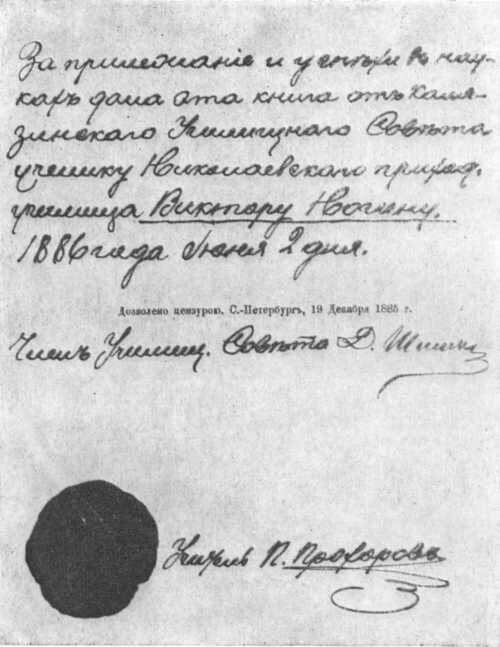 За прилежанiе и успѣхи въ нау-
кахъ дана эта книга отъ Каля-
зинскаго Училищнаго Совѣта
ученику Николаевскаго приход.
училища Виктору Ногину.
1886 года Iюня 2 дня.
Дозволено цензурою. С.-Петербургъ, 19 Декабря 1885 г.
Членъ Училищ. Совѣта Д.
Учитель П. Прохоровъ